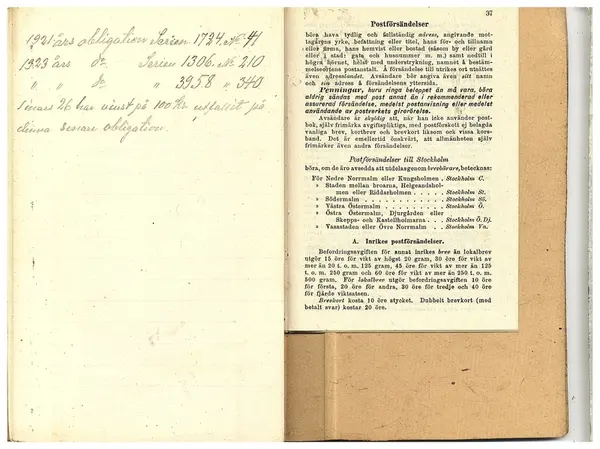 1921 års obligation Serien 1724 № 41
1923 års do Serien 1306 № 210
" " do " 3958 " 340
1 mars 26 har vinst på 100 Kr utfallit på
denna senare obligation.
37
Postförsändelser
böra hava tydlig och fullständig adress, angivande mot-
tagarens yrke, befattning eller titel, hans för- och tillnamn
eller firma, hans hemvist eller bostad (såsom by eller gård
eller i stad: gata och husnummer m. m.) samt nedtill i
högra hörnet, helst med understrykning, namnet å bestäm-
melseortens postanstalt. Å försändelse till utrikes ort utsättes
även adresslandet. Avsändare bör angiva även sitt namn
och sin adress å försändelsens yttersida.
Penningar, huru ringa beloppet än må vara, böra
aldrig sändas med post annat än i rekommenderad eller
assurerad försändelse, medelst postanvisning eller medelst
användande av postverkets girorörelse.
Avsändare är skyldig att, när han icke använder post-
bok, själv frimärka avgiftspliktiga, med postförskott ej belagda
vanliga brev, kortbrev och brevkort liksom ock vissa kors-
band. Det är emellertid önskvärt, att allmänheten själv
frimärker även andra försändelser.
Postförsändelser till Stockholm
böra, om de äro avsedda att utdelas genom brevbärare, betecknas:
För Nedre Norrmalm eller Kungsholmen . Stockholm C.
» Staden mellan broarna, Helgeandshol-
men eller Riddarholmen . . . . . Stockholm St.
» Södermalm . . . . . . . . . Stockholm Sö.
» Västra Östermalm . . . . . . . Stockholm Ö.
» Östra Östermalm, Djurgården eller
Skepps- och Kastellholmarna . . . Stockholm Ö. Dj.
» Vasastaden eller Övre Norrmalm . . Stockholm Va.
A. Inrikes postförsändelser.
Befordringsavgiften för annat inrikes brev än lokalbrev
utgör 15 öre för vikt av högst 20 gram, 30 öre för vikt av
mer än 20 t. o. m. 125 gram, 45 öre för vikt av mer än 125
t. o. m. 250 gram och 60 öre för vikt av mer än 250 t. o. m.
500 gram. För lokalbrev utgör befordringsavgiften 10 öre
för första, 20 öre för andra, 30 öre för tredje och 40 öre
för fjärde viktsatsen.
Brevkort kosta 10 öre stycket. Dubbelt brevkort (med
betalt svar) kostar 20 öre.